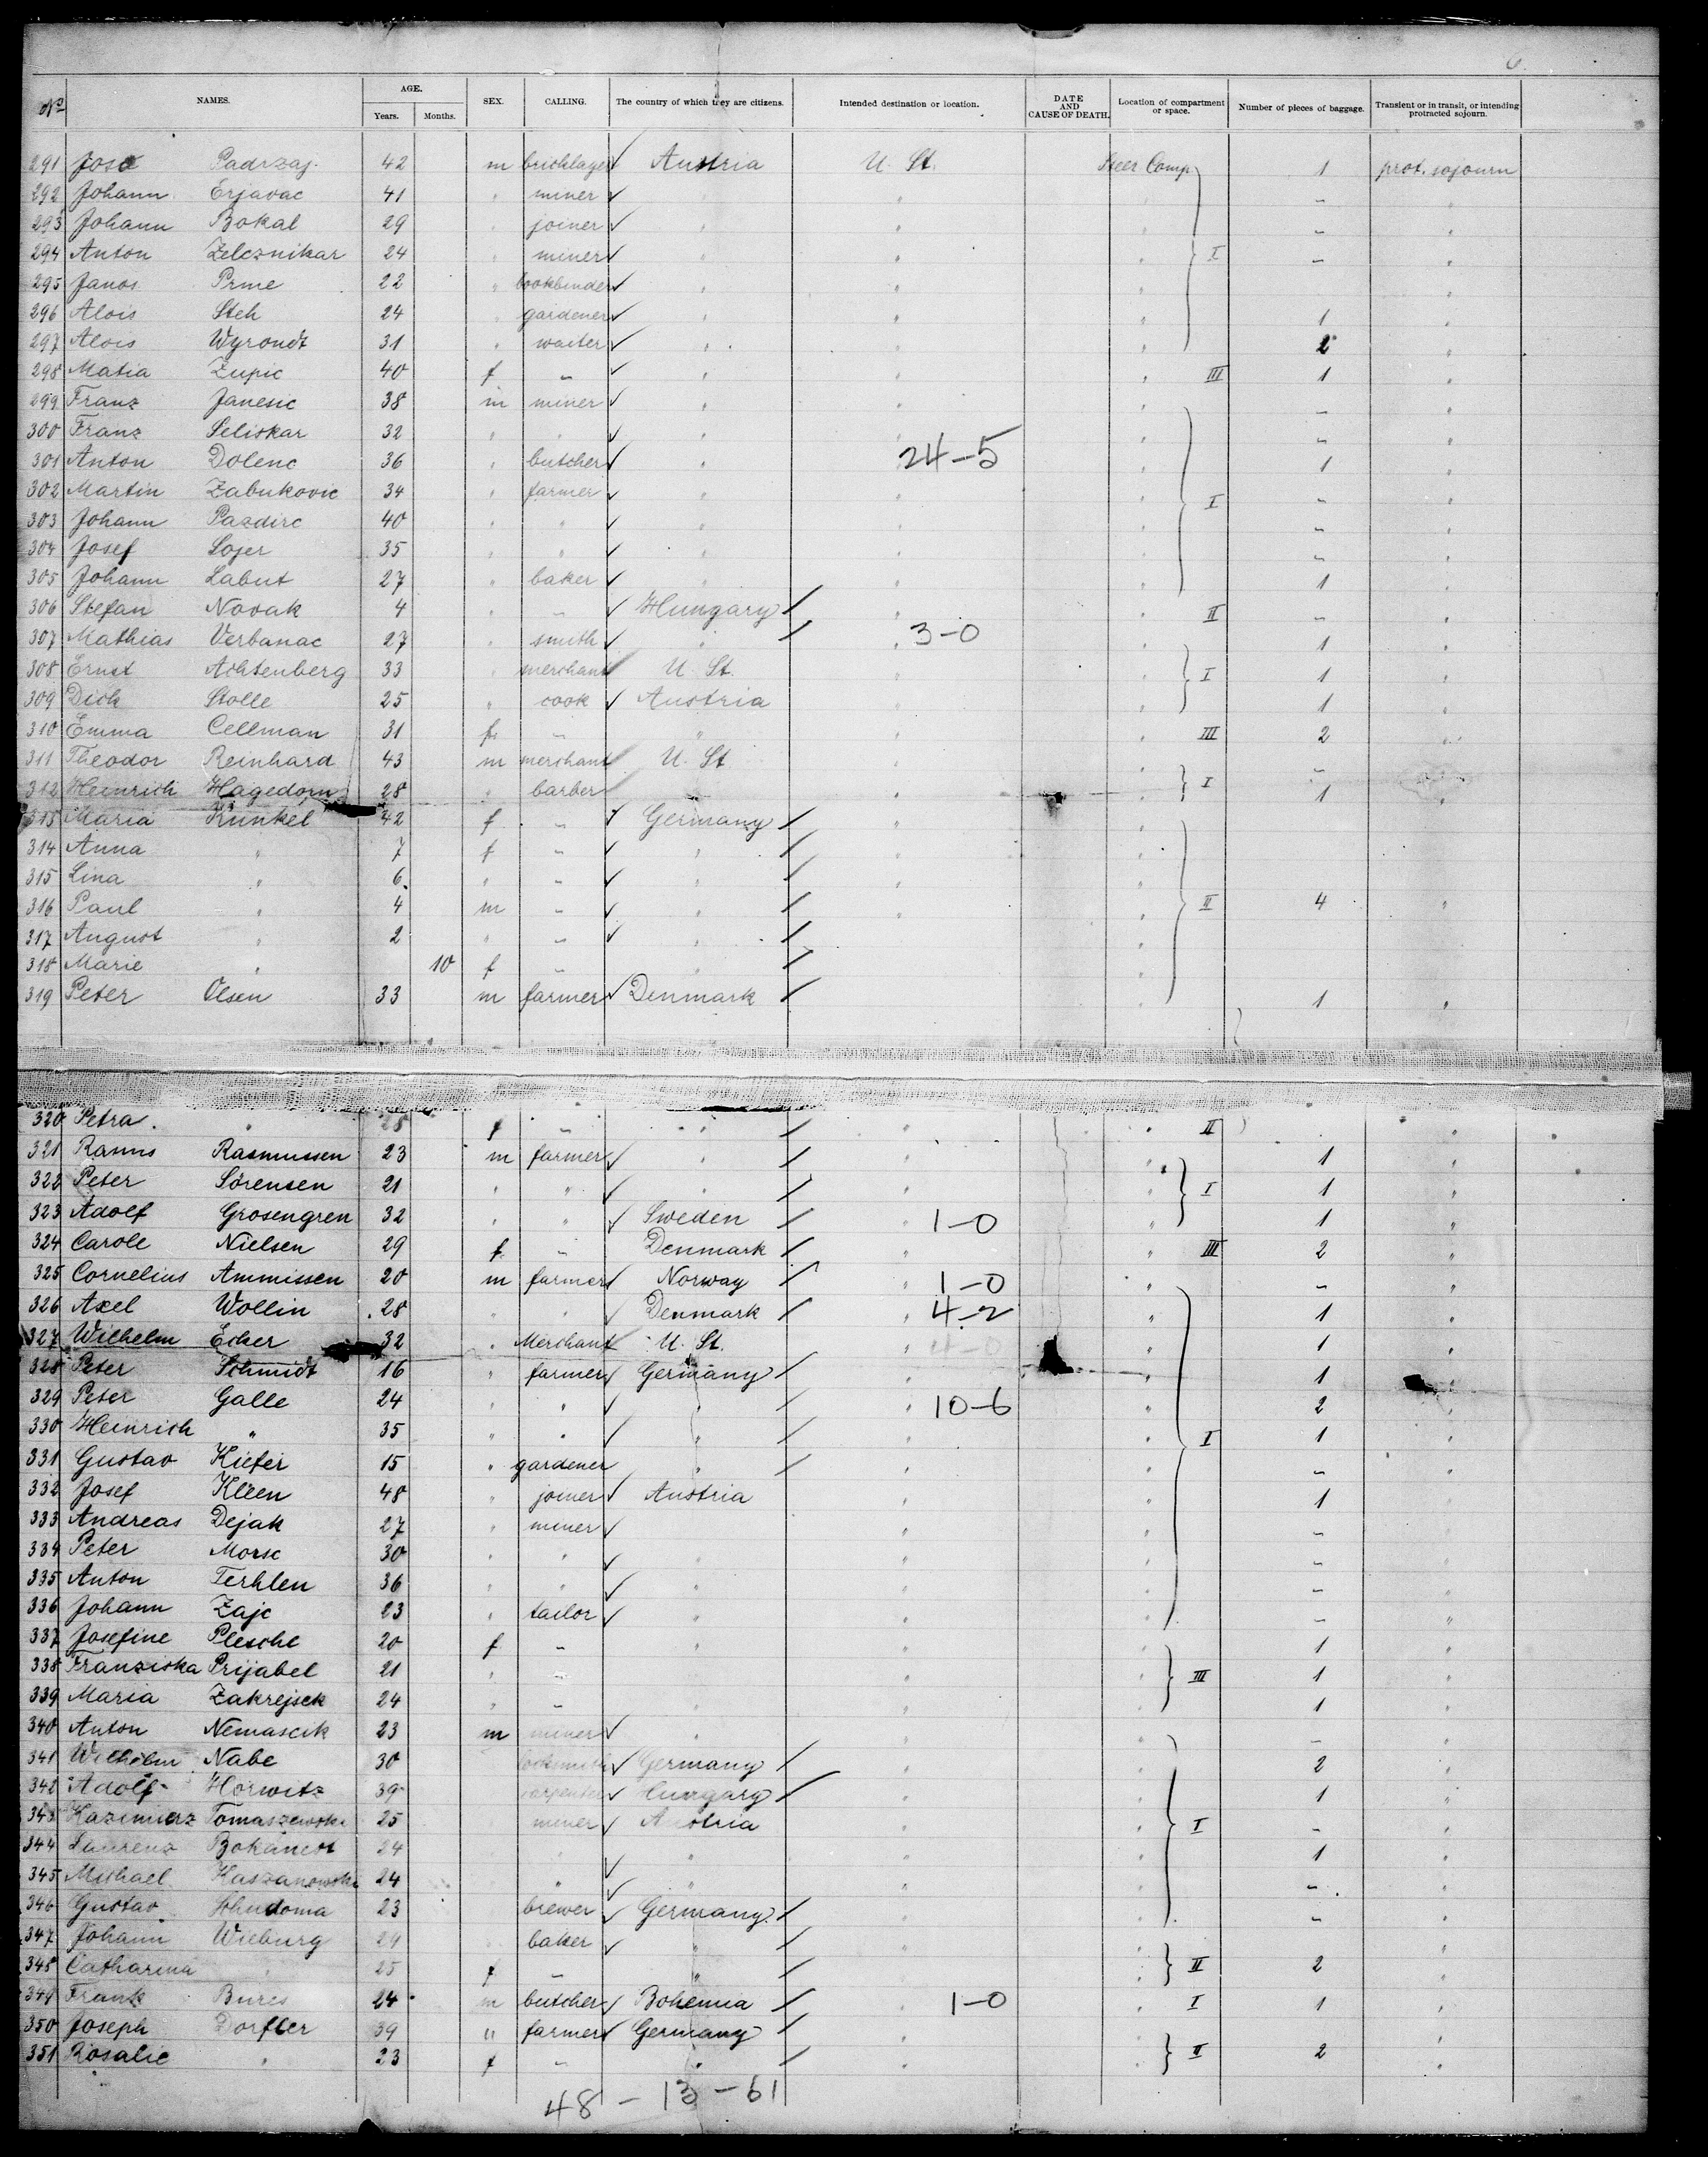 6.
No. NAMES. AGE. Years. Months. SEX. CALLING. The country of which they are citizens. Intended destination or location. DATE AND CAUSE OF DEATH. Location of compartment or space. Number of pieces of baggage. Transient or in transit, or intending protracted sojourn.
291 Jose Padrzaj 42 m bricklayer Austria U. St. Steer Comp 1 prot. sojourn
292 Johann Erjavac 41 " miner " " " – "
293 Johann Bokal 29 " joiner " " " – "
294 Anton Zeleznikar 24 " miner " " " I – "
295 Janos Prme 22 " bookbinder " " " "
296 Alois Steh 24 " gardener " " " 1 "
297 Alois Wyrondt 31 " waiter " " " 2 "
298 Matia Zupic 40 f – " " " III 1 "
299 Franz Janesic 38 m miner " " " – "
300 Franz Seliskar 32 " " " " " – "
301 Anton Dolenc 36 " butcher " 24–5 " 1 "
302 Martin Zabukovic 34 " farmer " " " I – "
303 Johann Pazdirc 40 " " " " " – "
304 Josef Sojer 35 " " " " " – "
305 Johann Labut 27 " baker " " " 1 "
306 Stefan Novak 4 " – Hungary " " II – "
307 Mathias Verbanac 27 " smith " " 3–0 " 1 "
308 Ernst Achtenberg 33 " merchant U. St. " " I 1 "
309 Dick Stolle 25 " cook Austria " " 1 "
310 Emma Cellman 31 f – " " " III 2 "
311 Theodor Reinhard 43 m merchant U. St. " " – "
312 Heinrich Hagedorn 28 " barber " " I 1 "
313 Maria Künkel 42 f – Germany " "
314 Anna " 7 f – " " "
315 Lina " 6 " – " " "
316 Paul " 4 m – " " " II 4 "
317 August " 2 " – " "
318 Marie " 10 f – " "
319 Peter Olsen 33 m farmer Denmark " 1 "
320 Petra " 28 f – " " " II "
321 Rasmus Rasmussen 23 m farmer " " " 1 "
322 Peter Sörensen 21 " " " " " I 1 "
323 Adolf Grosengren 32 " " Sweden " 1–0 " 1 "
324 Carole Nielsen 29 f – Denmark " " III 2 "
325 Cornelius Ammissen 20 m farmer Norway " 1–0 " – "
326 Axel Wollin 28 " " Denmark " 4–2 " 1 "
327 Wilhelm Ecker 32 " Merchant U. St. " 4–0 " 1 "
328 Peter Schmidt 16 " farmer Germany " " 1 "
329 Peter Galle 24 " " " " 10–6 " 2 "
330 Heinrich " 35 " " " " " I 1 "
331 Gustav Kiefer 15 " gardener " " " – "
332 Josef Kleen 48 " joiner Austria " " 1
333 Andreas Dejak 27 " miner " " – "
334 Peter Morsc 30 " " " " " – "
335 Anton Terhlen 36 " " " " " – "
336 Johann Zajc 23 " tailor " " " – "
337 Josefine Plesche 20 f – " " " 1 "
338 Franziska Prijabel 21 " – " " III 1 "
339 Maria Zakrejsek 24 " – " " " 1 "
340 Anton Nemascik 23 m miner " " " – "
341 Wilhelm Nabe 30 locksmith Germany " " 2 "
342 Adolf Horwitz 39 carpenter Hungary " " 1 "
343 Kazimierz Tomaszewski 25 miner Austria " " I – "
344 Laurenz 24 " " " " 1 "
345 Michael Kaszanowski 24 " " " " – "
346 Gustav 23 brewer Germany " " – "
347 Johann Wieburg 29 baker " " " "
348 Catharina " 25 f – " " II 2 "
349 Frank Bures 24 m butcher Bohemia " 1–0 " I 1 "
350 Joseph Dorfler 39 " farmer Germany " " "
351 Rosalie " 23 f – " " " II 2 "
48 – 13 – 61